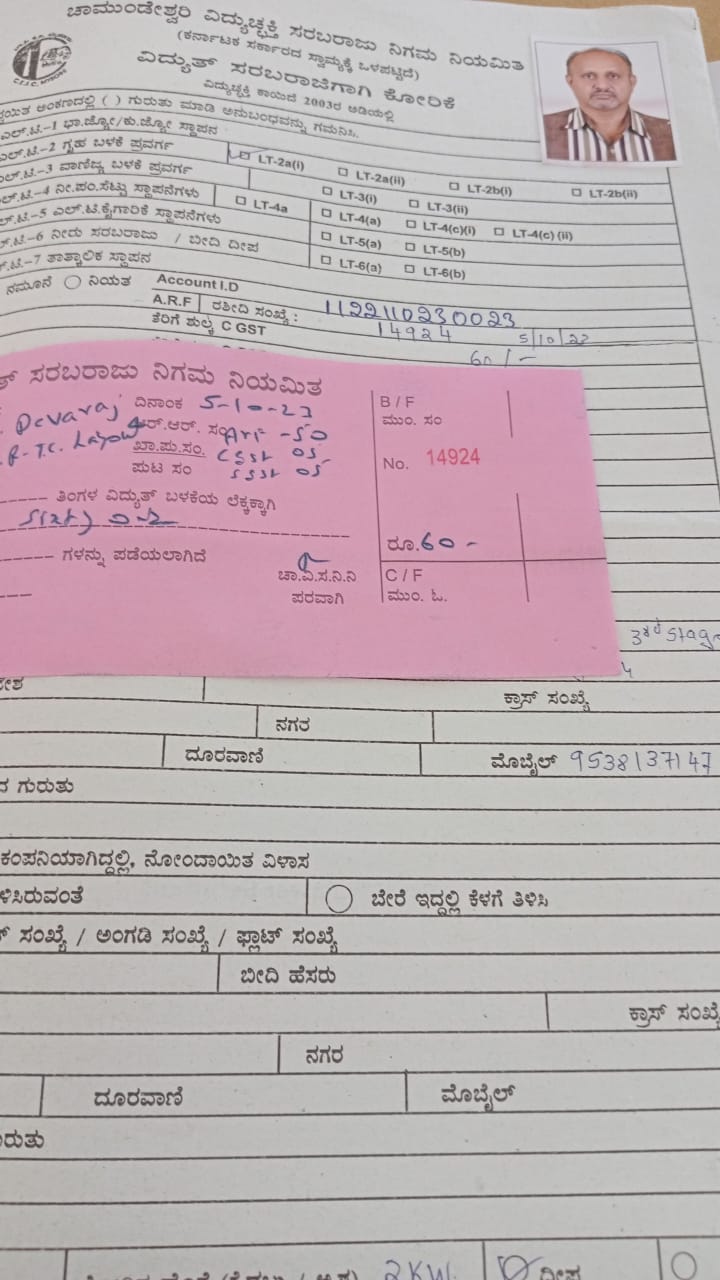 ಚಾಮುಂಡೇಶ್ವರಿ ವಿದ್ಯುಚ್ಛಕ್ತಿ ಸರಬರಾಜು ನಿಗಮ ನಿಯಮಿತ
(ಕರ್ನಾಟಕ ಸರ್ಕಾರದ ಸ್ವಾಮ್ಯಕ್ಕೆ ಒಳಪಟ್ಟಿದೆ)
ವಿದ್ಯುತ್ ಸರಬರಾಜಿಗಾಗಿ ಕೋರಿಕೆ
ವಿದ್ಯುಚ್ಛಕ್ತಿ ಕಾಯಿದೆ 2003ರ ಅಡಿಯಲ್ಲಿ
ಅಂಕಣದಲ್ಲಿ ( ) ಗುರುತು ಮಾಡಿ ಅನುಬಂಧವನ್ನು ಗಮನಿಸಿ.
ಎಲ್.ಟಿ.-1 ಭಾ.ಜ್ಯೋ/ಕು.ಜ್ಯೋ ಸ್ಥಾಪನ
ಎಲ್.ಟಿ.-2 ಗೃಹ ಬಳಕೆ ಪ್ರವರ್ಗ LT-2a(i) LT-2a(ii) LT-2b(i) LT-2b(ii)
ಎಲ್.ಟಿ.-3 ವಾಣಿಜ್ಯ ಬಳಕೆ ಪ್ರವರ್ಗ LT-3(i) LT-3(ii)
ಎಲ್.ಟಿ.-4 ನೀ.ಪಂ.ಸೆಟ್ಟು ಸ್ಥಾಪನೆಗಳು LT-4a LT-4(a) LT-4(c)(i) LT-4(c) (ii)
.ಟಿ.-5 ಎಲ್.ಟಿ.ಕೈಗಾರಿಕೆ ಸ್ಥಾಪನೆಗಳು LT-5(a) LT-5(b)
.ಟಿ.-6 ನೀರು ಸರಬರಾಜು / ಬೀದಿ ದೀಪ LT-6(a) LT-6(b)
.ಟಿ.-7 ತಾತ್ಕಾಲಿಕ ಸ್ಥಾಪನ
ನಮೂನೆ ನಿಯತ Account I.D
A.R.F ರಶೀದಿ ಸಂಖ್ಯೆ : 1122110230023
ತೆರಿಗೆ ಶುಲ್ಕ C GST 14924 5/10/23
60/-
ಸರಬರಾಜು ನಿಗಮ ನಿಯಮಿತ
Devaraj ದಿನಾಂಕ 5-10-23
ಆರ್.ಆರ್. ಸಂ Arf -50
ಖಾ.ಪು.ಸಂ. CSSt 05
ಪುಟ ಸಂ SSSt 05
B / F
ಮುಂ. ಸಂ
No. 14924
ತಿಂಗಳ ವಿದ್ಯುತ್ ಬಳಕೆಯ ಲೆಕ್ಕಕ್ಕಾಗಿ
ರೂ.60 -
ಗಳನ್ನು ಪಡೆಯಲಾಗಿದೆ
ಚಾ.ವಿ.ಸ.ನಿ.ನಿ
ಪರವಾಗಿ
C / F
ಮುಂ. ಓ.
3rd Stage
4
ಕ್ರಾಸ್ ಸಂಖ್ಯೆ
ನಗರ
ದೂರವಾಣಿ ಮೊಬೈಲ್ 9538137147
ಗುರುತು
ಕಂಪನಿಯಾಗಿದ್ದಲ್ಲಿ, ನೋಂದಾಯಿತ ವಿಳಾಸ
ಳಿಸಿರುವಂತೆ ಬೇರೆ ಇದ್ದಲ್ಲಿ ಕೆಳಗೆ ತಿಳಿಸಿ
ಸಂಖ್ಯೆ / ಅಂಗಡಿ ಸಂಖ್ಯೆ / ಫ್ಲಾಟ್ ಸಂಖ್ಯೆ
ಬೀದಿ ಹೆಸರು
ಕ್ರಾಸ್ ಸಂಖ್ಯೆ
ನಗರ
ದೂರವಾಣಿ ಮೊಬೈಲ್
ರುತು
2KW.